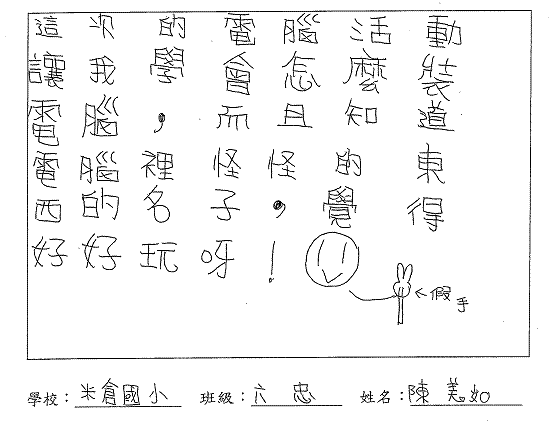 這次的電腦活動
讓我學會怎麼裝
電腦，而且知道
電腦裡怪怪的東
西的名子，覺得
好好玩呀！
←假手
學校：米倉國小 班級：六忠 姓名：陳美如